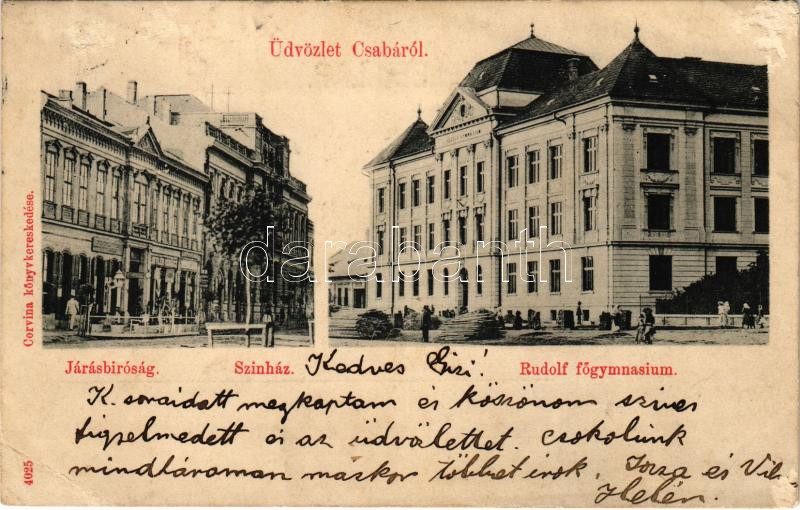 Üdvözlet Csabáról.
Corvina könyvkereskedése.
4025
darabanth
Járásbiróság.
Szinház.
Rudolf főgymnasium.
Kedves Gizi!
K. soraidatt megkaptam és köszönom szives
figyelmedett és az üdvölettet. csokolunk
mindtáraman máskor többet irok. és
Helén.